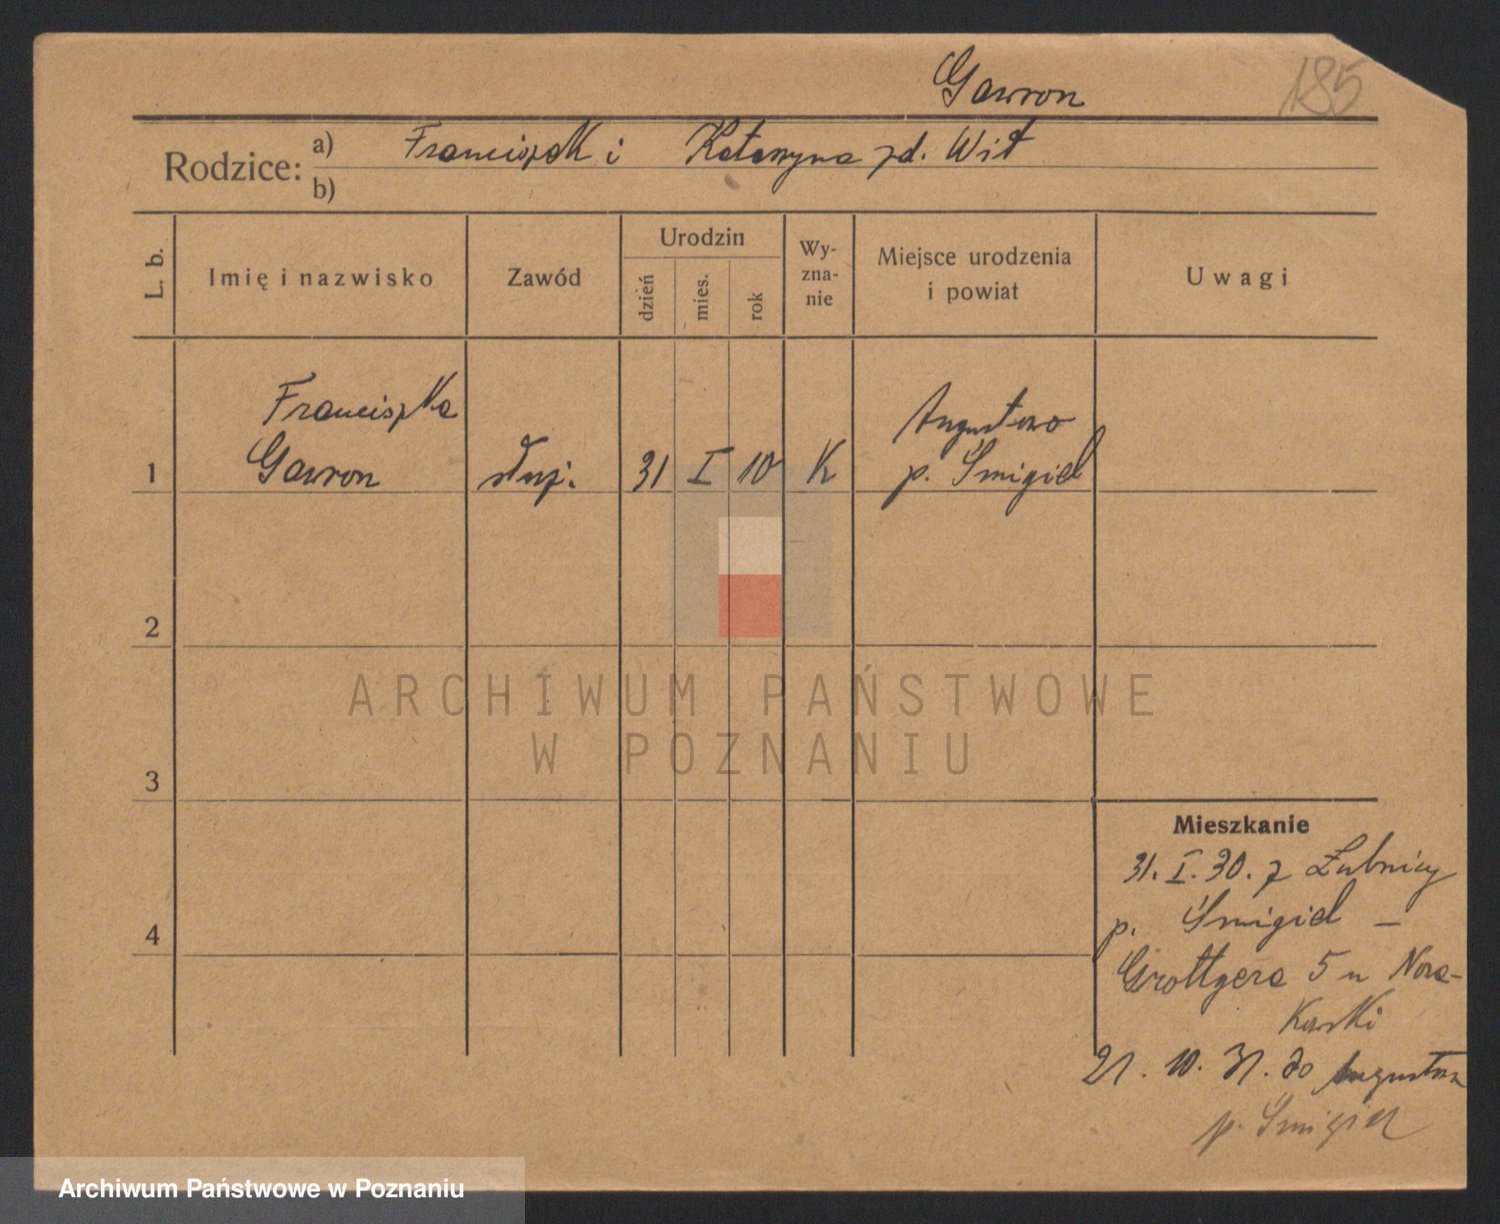 Gawron
185
Rodzice: a) Franciszek i Katarzyna zd. Wit
b)
L. b.
Imię i nazwisko
Zawód
Urodzin
dzień
mies.
rok
Wy-
zna-
nie
Miejsce urodzenia
i powiat
Uwagi
Franciszka
Augustowo
1 Gawron służ. 31 I 10 K p. Śmigiel
2
3
4
Mieszkanie
31. I. 30. z Żubnicy
p. Śmigiel –
Grottgera 5 u
21. 10. 31. do Augustowa
p. Śmigiel
ARCHIWUM PAŃSTWOWE
W POZNANIU
Archiwum Państwowe w Poznaniu